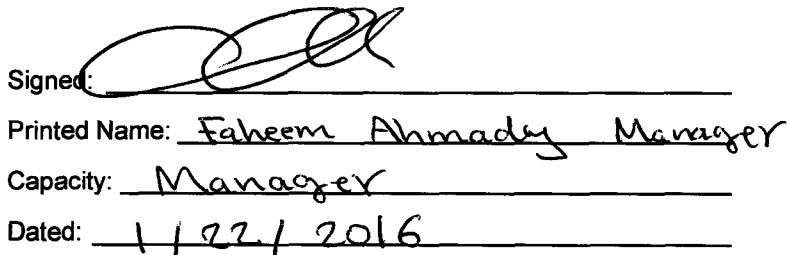 Signed:
Printed Name: Faheem Ahmady Manager
Capacity: Manager
Dated: 1/22/2016